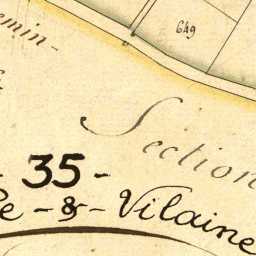 649
emin
Section
- 35 -
le - & - Vilaine